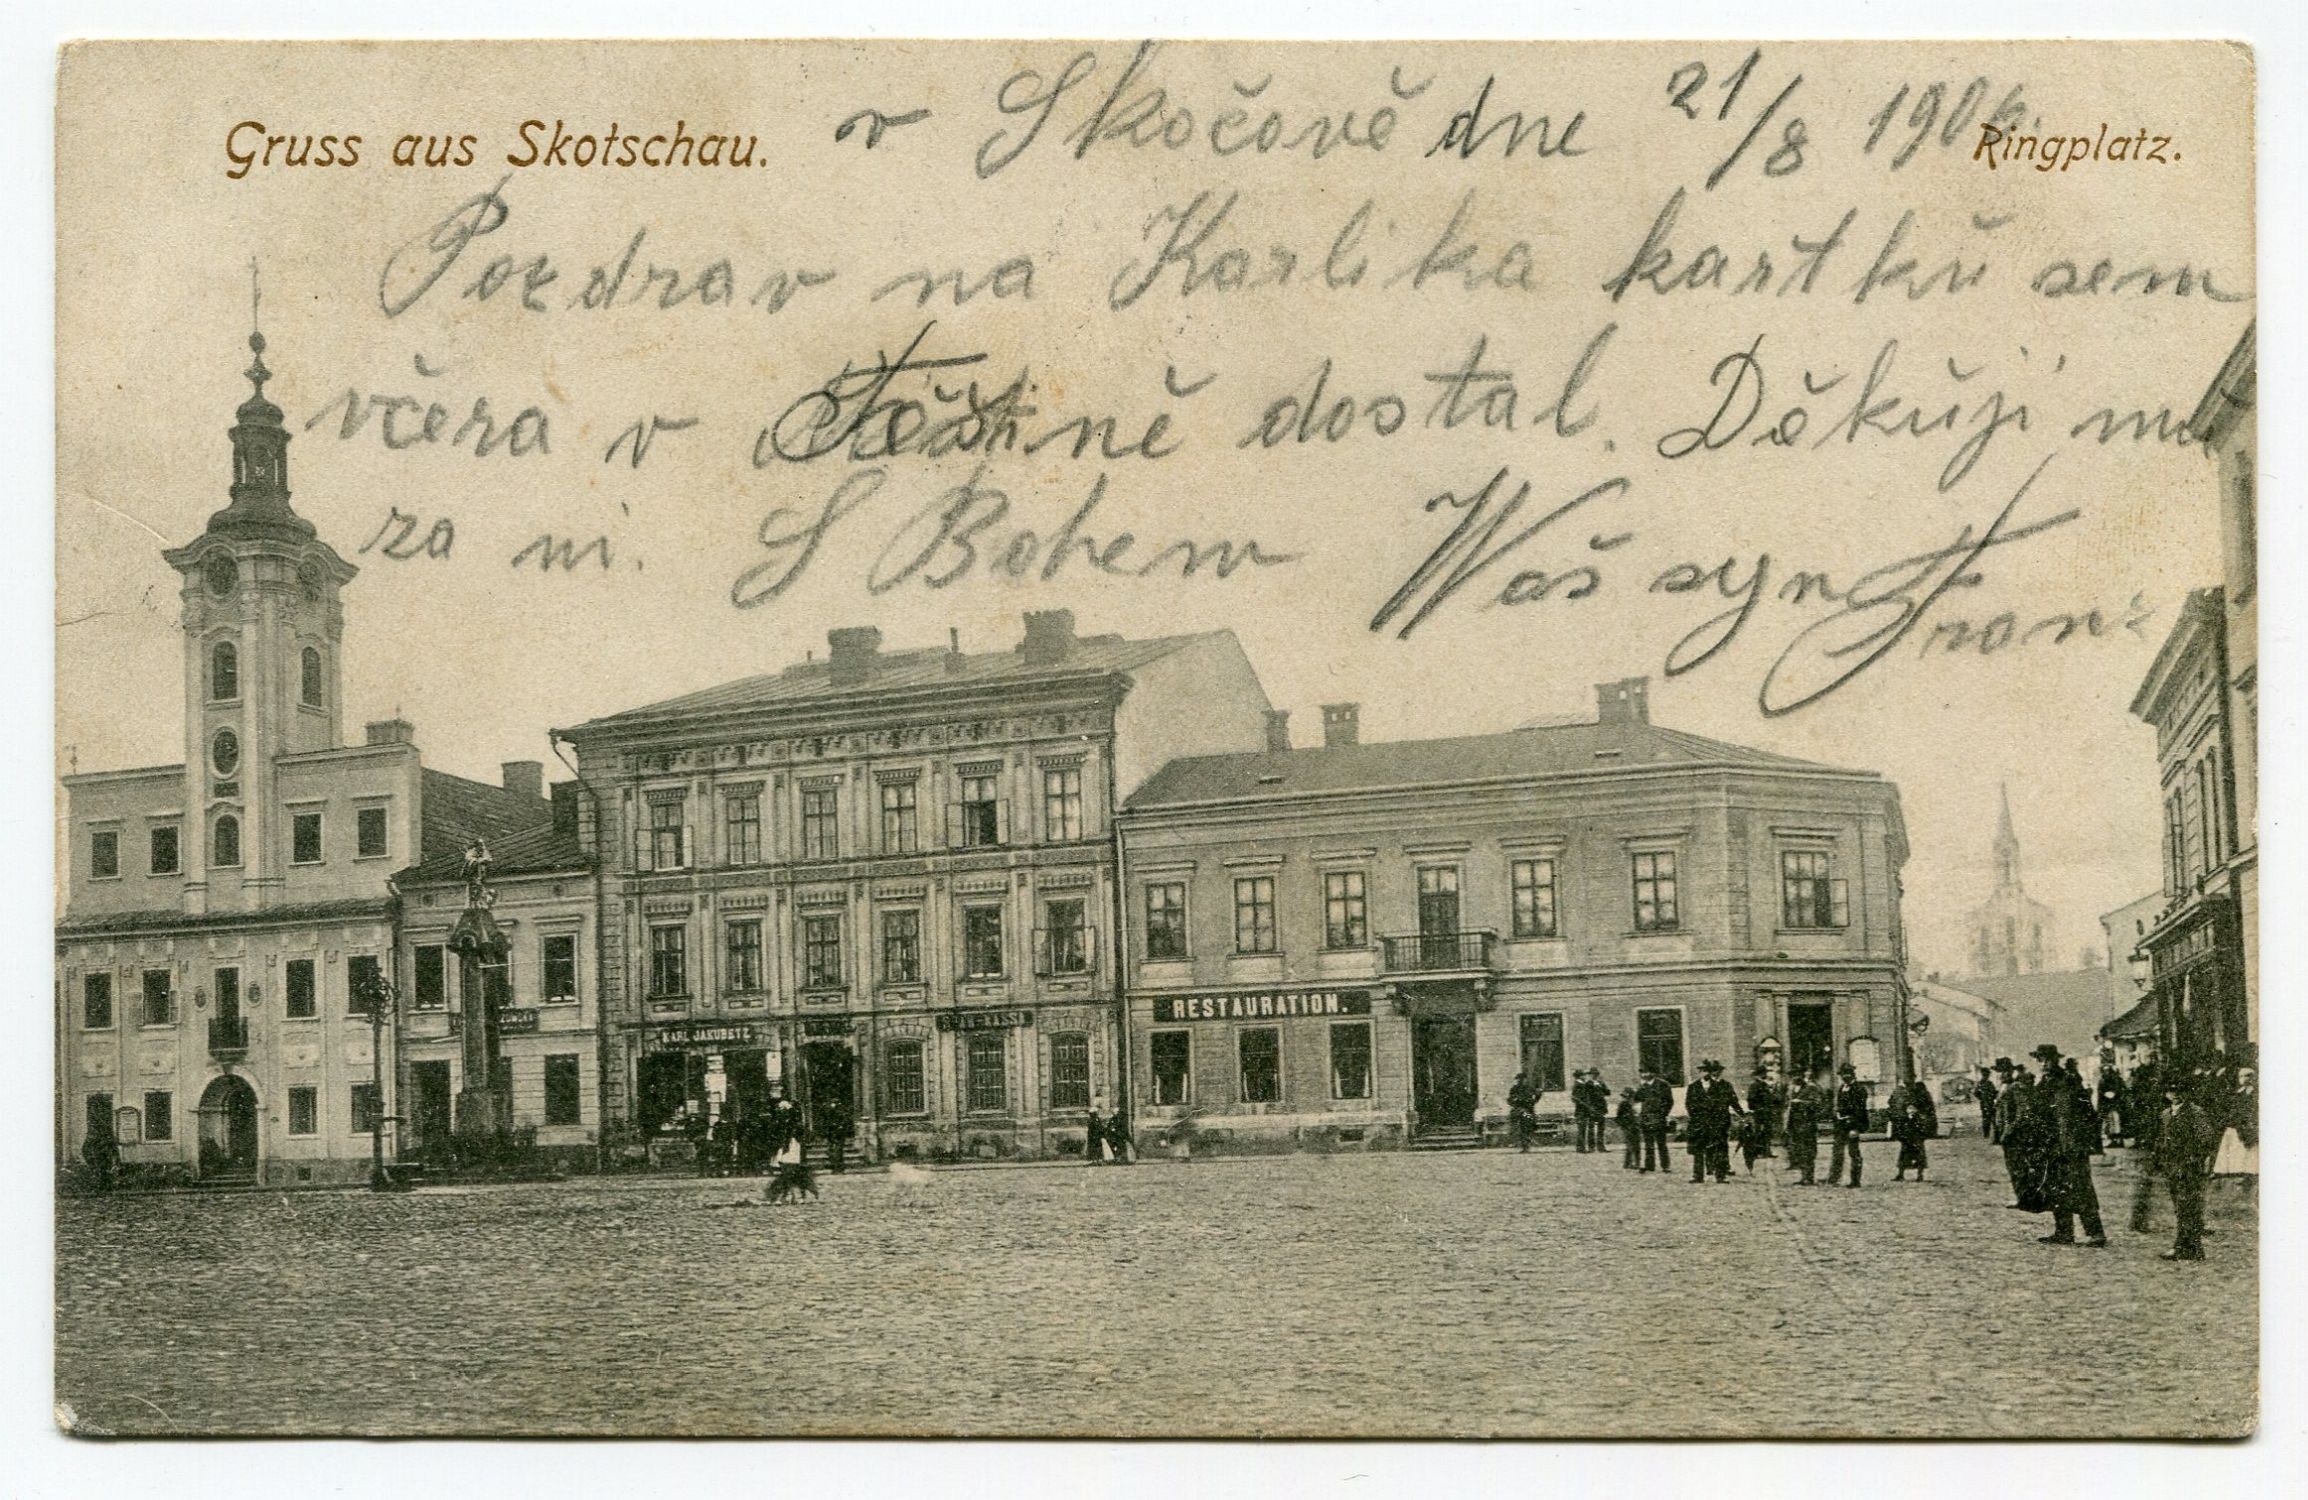 Gruss aus Skotschau.
v Skočově dne 21/8 1906.
Ringplatz.
Pozdrav na Karlika kartku sem
včera v Těšině dostal. Děkuji mu
za ni. S Bohem Waš syn Franz
KARL JAKUBETZ
RESTAURATION.